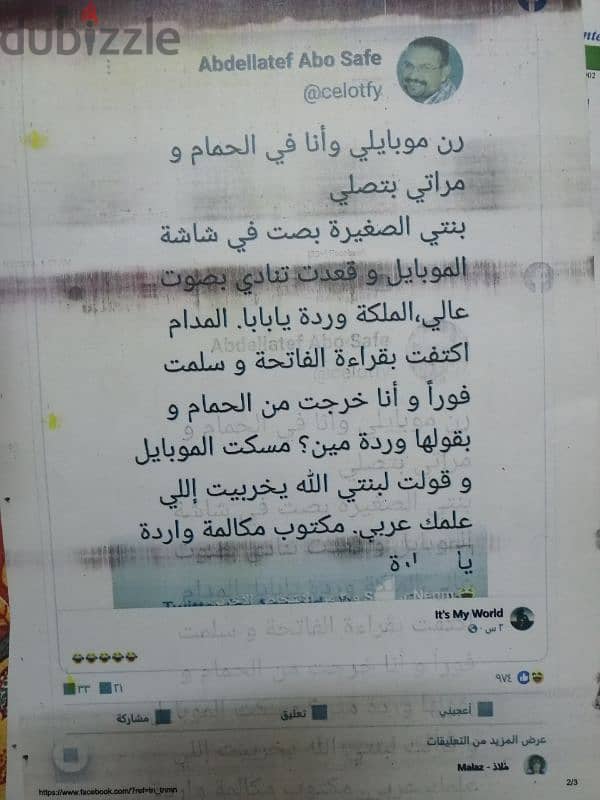 dubizzle
Abdellatef Abo Safe
@celotfy
رن موبايلي وأنا في الحمام و
مراتي بتصلي
بنتي الصغيرة بصت في شاشة
الموبايل و قعدت تنادي بصوت
عالي،الملكة وردة يابابا. المدام
اكتفت بقراءة الفاتحة و سلمت
فوراً و أنا خرجت من الحمام و
بقولها وردة مين؟ مسكت الموبايل
و قولت لبنتي الله يخربيت إللي
علمك عربي. مكتوب مكالمة واردة
It's My World
٢ س
😂😂😂😂😂
٩٧٤
٢١
٣٣
أعجبني
تعليق
مشاركة
عرض المزيد من التعليقات
ملاذ - Malaz
2/3
https://www.facebook.com/?ref=tn_tnmn